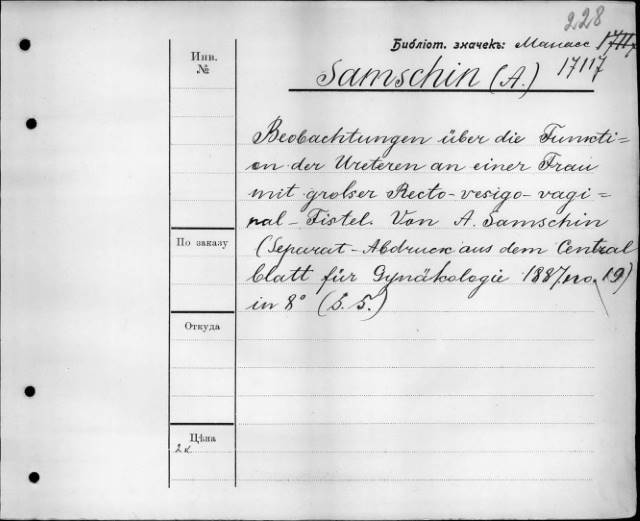 228
Библіот. значекъ: Манасс 17117
17117
Samschin (A.)
Инв.
№
Beobachtungen über die Functi=
on der Ureteren an einer Frau
mit grolser Recto-vesigo-vagi=
nal-Fistel. Von A. Samschin
(Separat-Abdruck aus dem Central
blatt für Gynäkologie 1887. no. 19)
in 8° (S. 5.)
По заказу
Откуда
Цѣна
2к